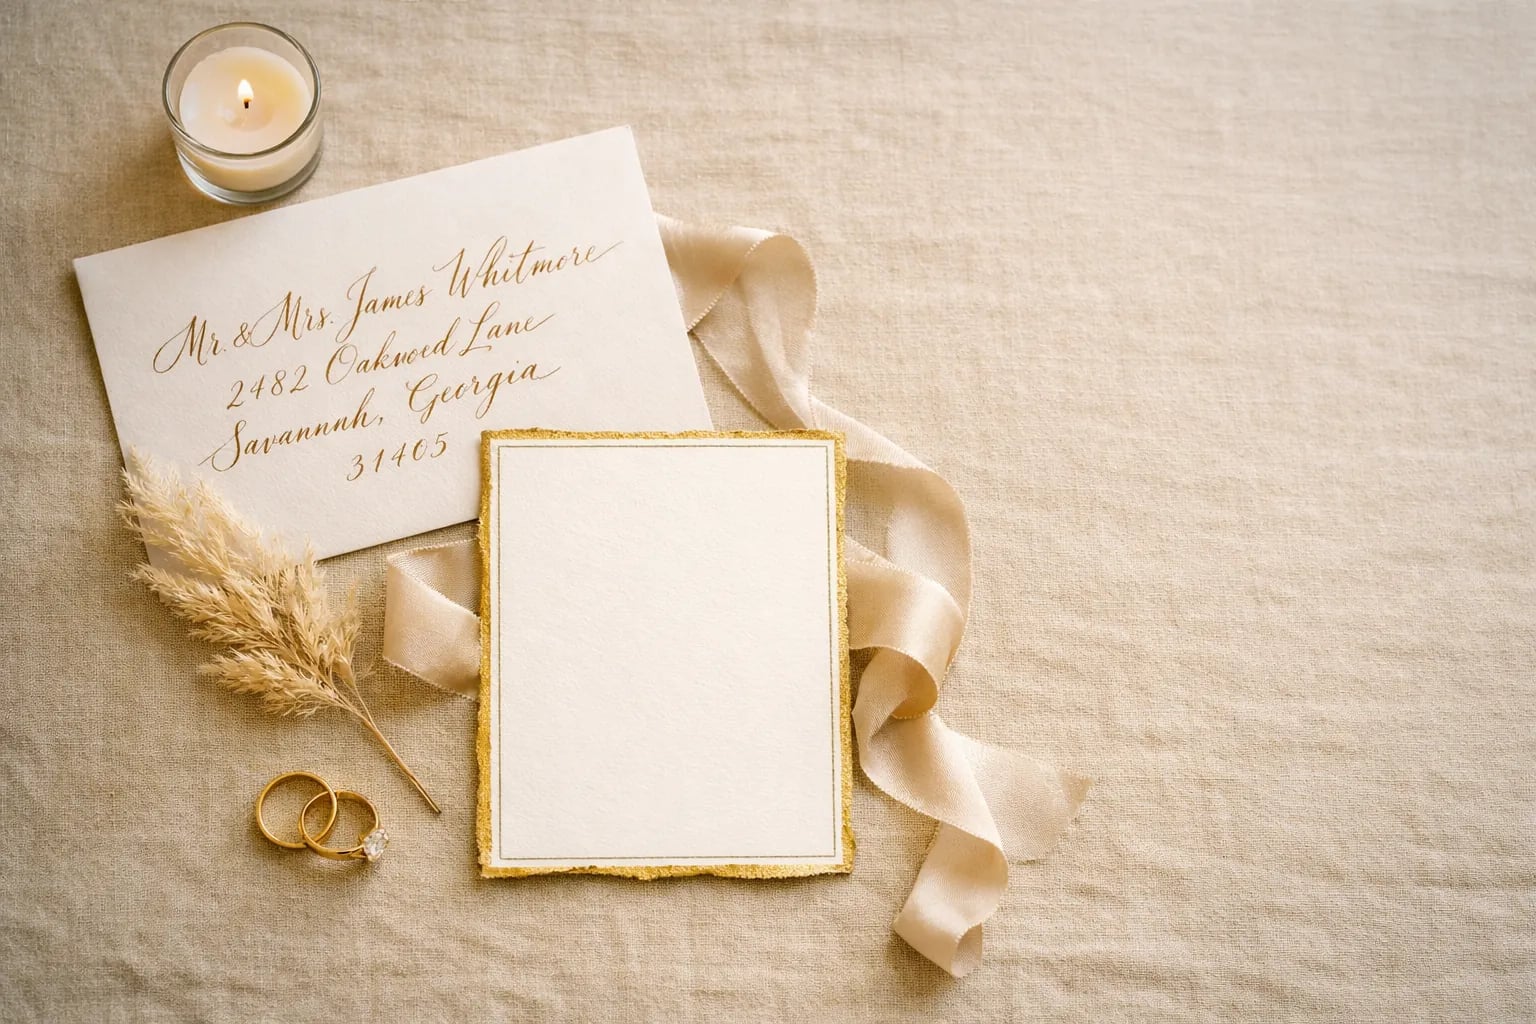 Mr. & Mrs. James Whitmore
2482 Oakwood Lane
Savannnh, Georgia
31405